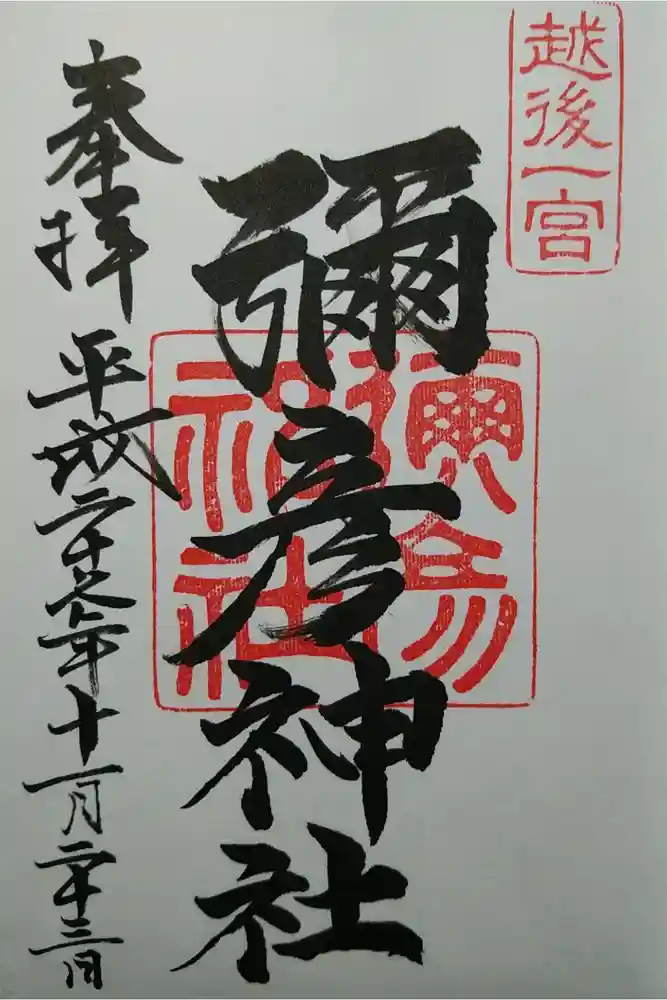 越後一宮
彌彦神社
奉拝
平成二十八年十一月二十三日